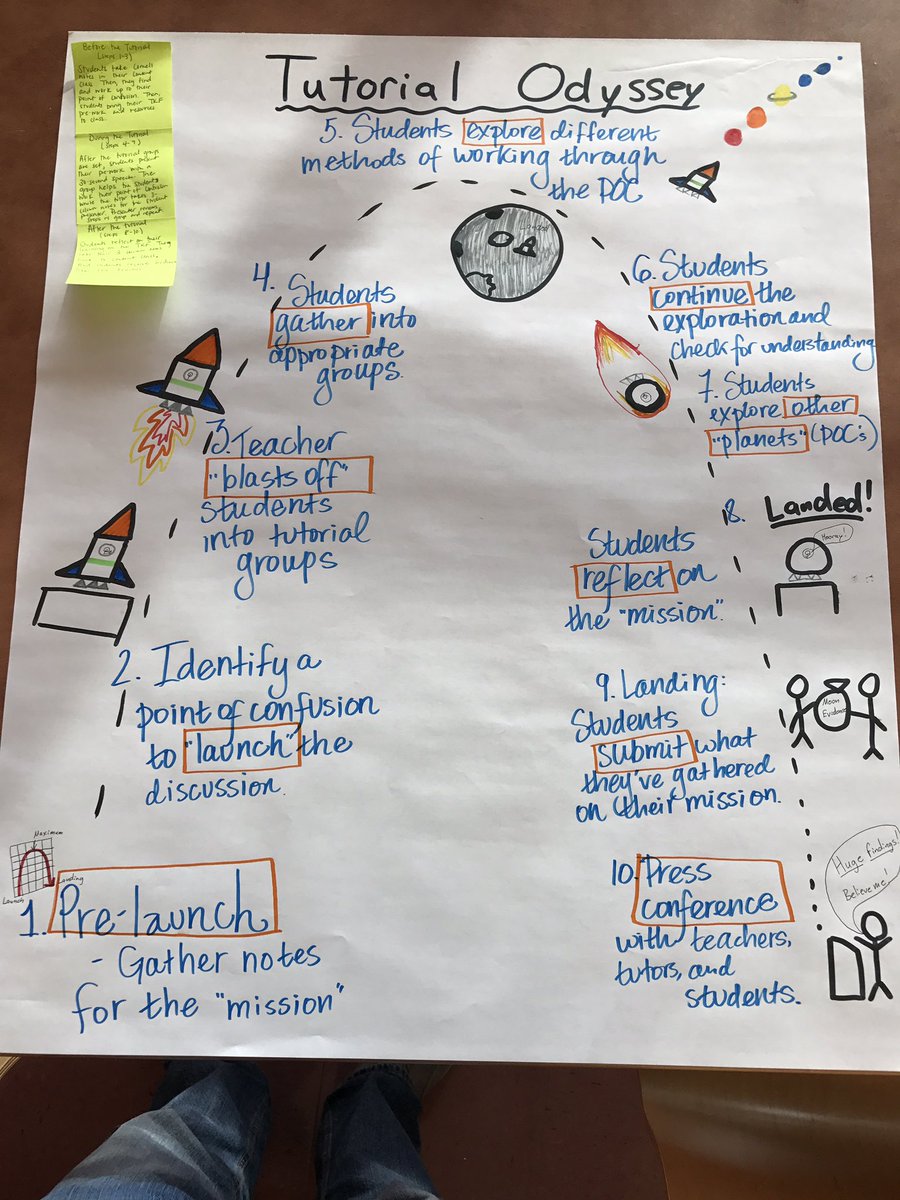 Tutorial Odyssey
Before the Tutorial
(steps 1-3)
Students take Cornell
notes in their content
class. Then, they find
and work up to their
point of confusion. Then,
students bring their TRF
pre-work and resources
to class.
During the Tutorial
(Steps 4-7)
After the tutorial groups
are set, students present
their pre-work with a
30-second speech. The
group helps the student
work their point of confusion
while the
column notes for the student
presenter.
group and repeat.
After the tutorial
(steps 8-10)
Students reflect on their
1. Pre-launch
- Gather notes
for the "mission"
Maximum
Launch
Landing
2. Identify a
point of confusion
to "launch" the
discussion.
3. Teacher
"blasts off"
students
into tutorial
groups
4. Students
gather into
appropriate
groups.
5. Students explore different
methods of working through
the POC
6. Students
continue the
exploration and
check for understanding
7. Students
explore other
"planets" (POC's)
8. Landed!
Hooray!
Students
reflect on
the "mission".
9. Landing:
Students
submit what
they've gathered
on their mission.
Moon
Evidence
10. Press
conference
with teachers,
tutors, and
students.
Huge findings!
Believe me!